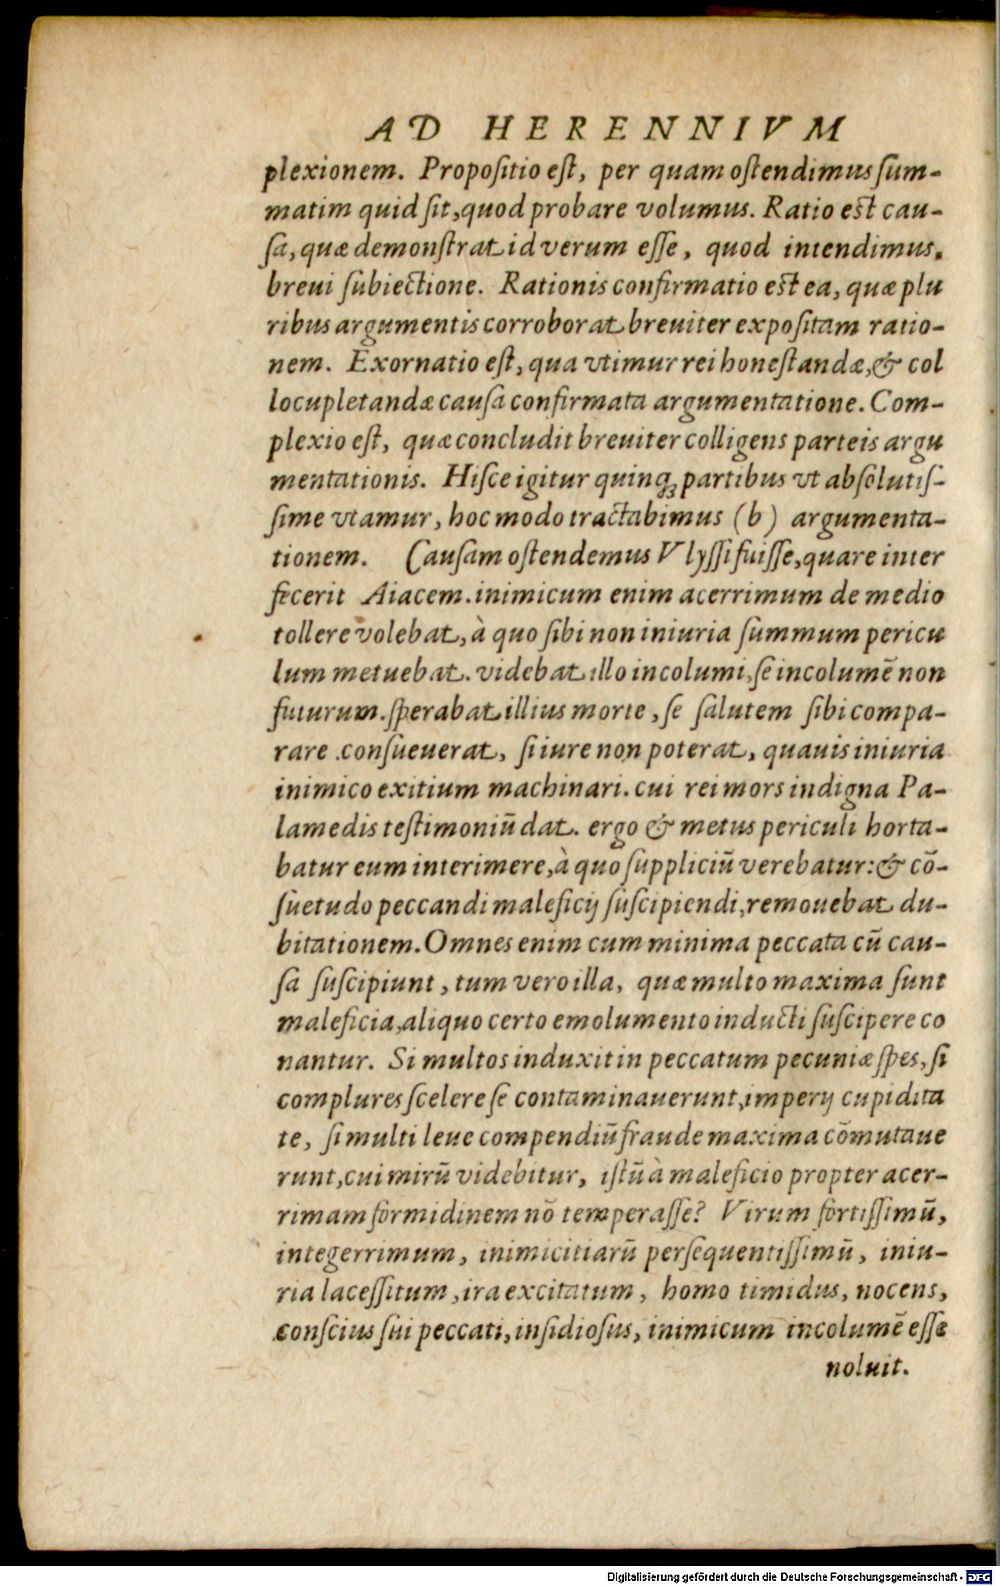 AD HERENNIVM
plexionem. Propoſitio eſt, per quam oſtendimus ſum-
matim quid ſit, quod probare volumus. Ratio eſt cau-
ſa, quæ demonſtrat id verum eſſe, quod intendimus.
breui ſubiectione. Rationis confirmatio eſt ea, quæ plu
ribus argumentis corroborat breuiter expoſitam ratio-
nem. Exornatio eſt, qua vtimur rei honeſtandæ, & col
locupletandæ cauſa confirmata argumentatione. Com-
plexio eſt, quæ concludit breuiter colligens parteis argu
mentationis. Hiſce igitur quinq; partibus vt abſolutiſ-
ſime vtamur, hoc modo tractabimus (b) argumenta-
tionem. Cauſam oſtendemus Vlyſſi fuiſſe, quare inter
fecerit Aiacem. inimicum enim acerrimum de medio
tollere volebat, à quo ſibi non iniuria ſummum pericu
lum metuebat. videbat illo incolumi, ſe incolumē non
futurum. ſperabat illius morte, ſe ſalutem ſibi compa-
rare. conſueuerat, ſi iure non poterat, quauis iniuria
inimico exitium machinari. cui rei mors indigna Pa-
lamedis teſtimoniū dat. ergo & metus periculi horta-
batur eum interimere, à quo ſuppliciū verebatur: & cō-
ſuetudo peccandi maleficij ſuſcipiendi, remouebat du-
bitationem. Omnes enim cum minima peccata cū cau-
ſa ſuſcipiunt, tum vero illa, quæ multo maxima ſunt
maleficia, aliquo certo emolumento inducti ſuſcipere co
nantur. Si multos induxit in peccatum pecuniæ ſpes, ſi
complures ſcelere ſe contaminauerunt, imperij cupidita
te, ſi multi leue compendiū fraude maxima cōmutaue
runt, cui mirū videbitur, iſtū à maleficio propter acer-
rimam formidinem nō temperaſſe? Virum fortiſſimū,
integerrimum, inimicitiarū perſequentiſſimū, iniu-
ria laceſſitum, ira excitatum, homo timidus, nocens,
conſcius ſui peccati, inſidioſus, inimicum incolumē eſſe
noluit.
Digitalisierung gefördert durch die Deutsche Forschungsgemeinschaft - DFG